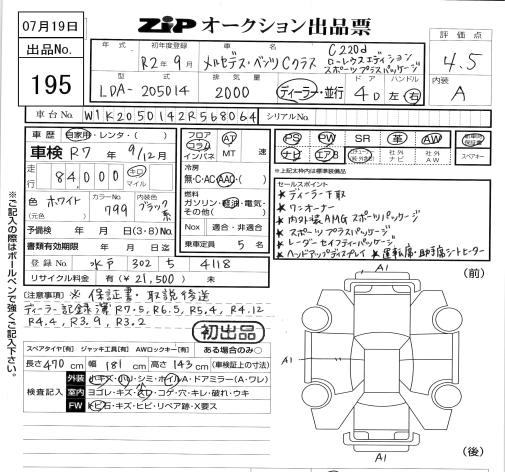 07月19日
ZIP オークション出品票
出品No.
195
年式 初年度登録 車名 評価点
R2年9月 メルセデス・ベンツ Cクラス C220d ローレウスエディション スポーツプラスパッケージ 4.5
型式 排気量 ドア ハンドル 内装
LDA-205014 2000 ディーラー・並行 4D 左・右 A
車台No. W1K2050142R568064 シリアルNo.
車歴 自家用・レンタ・( )
車検 R7年 9/12月
走行 84,000 キロ マイル
色 ホワイト カラーNo. 799 内装色 ブラック系
(元色)
予備検 年 月 日(3・8)Mo.
書類有効期限 年 月 日迄
登録No. 水戸 302 ち 4118
リサイクル料金 有(¥21,500) 未
フロア コラム インパネ AT MT 速
冷房 無・C・AC・AAC・( )
燃料 ガソリン・軽油・電気・その他( )
Nox 適合・非適合
乗車定員 5名
PS PW SR 革 AW 新車時保証書
ナビ エアB 社外ナビ 社外AW スペアキー
※上記太枠は標準装備品
セールスポイント
★ディーラー下取
★ワンオーナー
★内外装AMGスポーツパッケージ
★スポーツプラスパッケージ
★レーダーセイフティパッケージ
★ヘッドアップディスプレイ ★運転席・助手席シートヒーター
※ご記入の際はボールペンで強くご記入下さい。
(注意事項) ※保証書・取説後送
ディーラー記録簿 R7.5, R6.5, R5.4, R4.12
R4.4, R3.9, R3.2
初出品
スペアタイヤ[有] ジャッキ工具[有] AWロックキー[有] ある場合のみ○
長さ470cm 幅181cm 高さ143cm(車検証上の寸法)
検査記入
外装 小キズ・小U・シミ・ホイルA・ドアミラー(A・ワレ)
室内 ヨゴレ・キズ・スレ・コゲ・穴・キレ・破れ・ウキ
FW トビ石・キズ・ヒビ・リペア跡・X要ス
A1 (前)
A1
A1 (後)